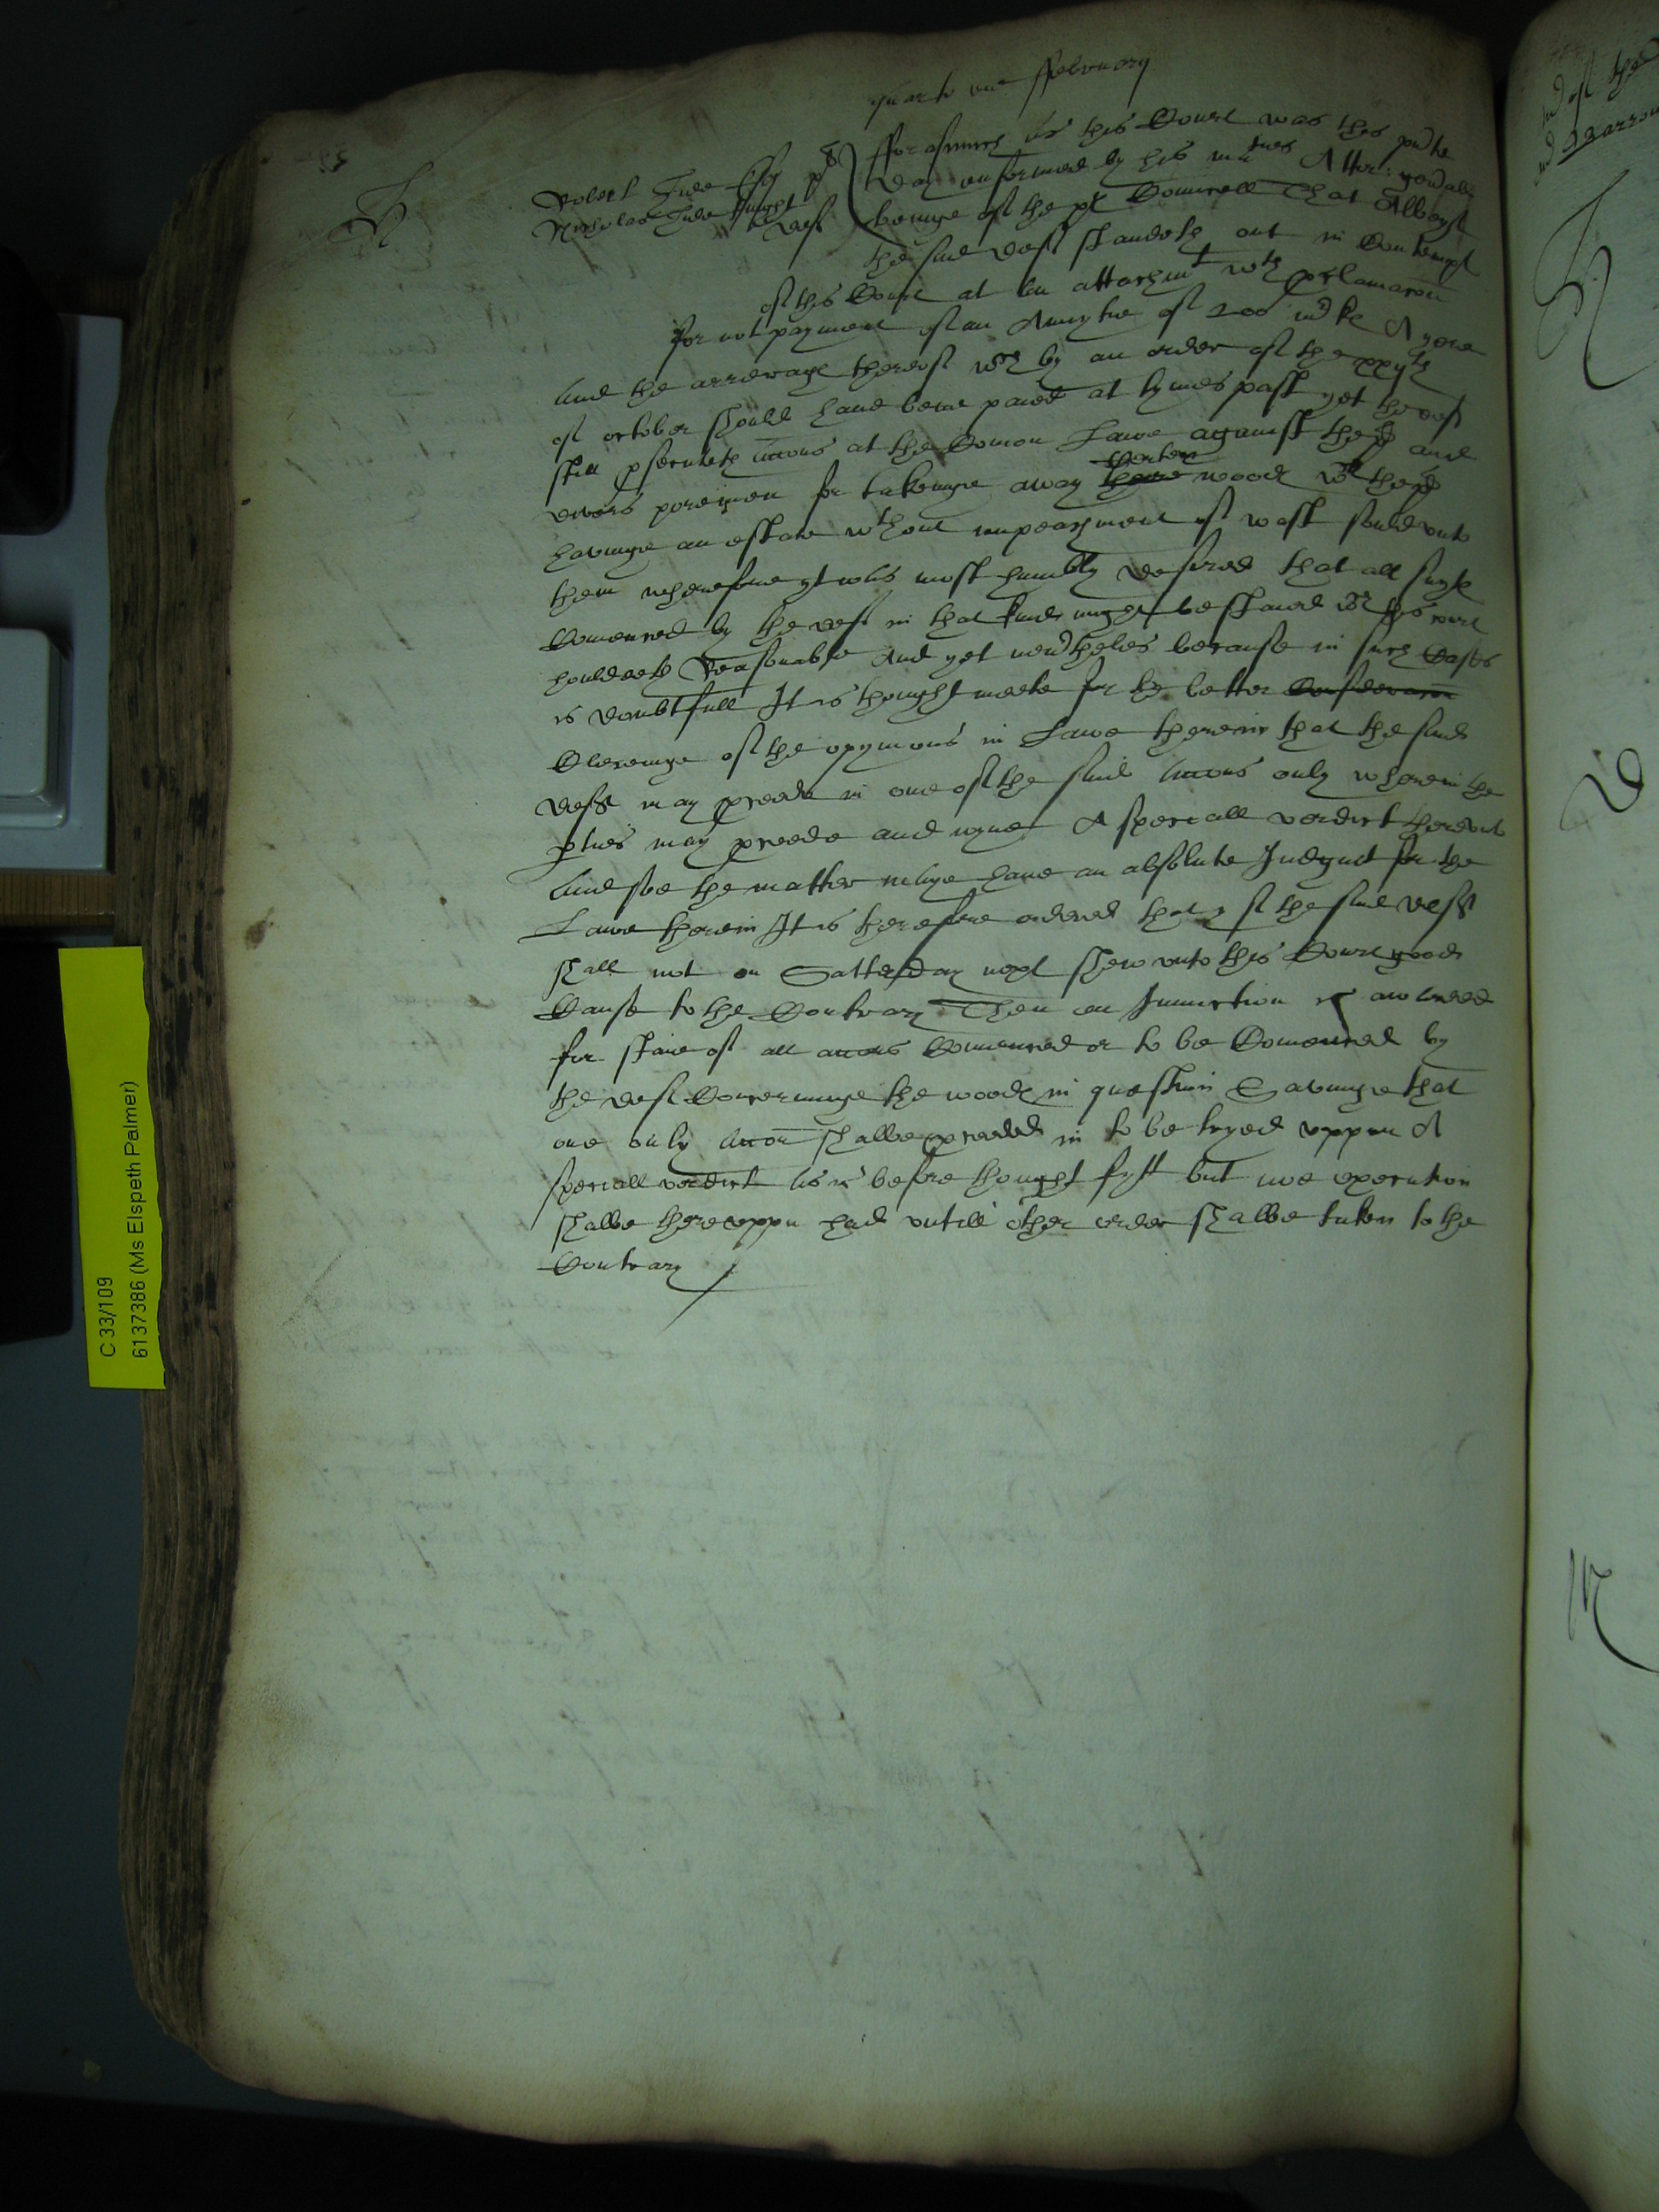 quarto die ffebruary
Robert Tule Esq pl
Nicholas Tule knight def
fforasmuch as this Court was this pnte
day enformed by his mates Attor: genall
beinge of the pl Councell That Albeyt
the said deft standeth out in Contempt
of this Court at an attachmt wth proclamacon
for not payment of an Anuytie of 200 mks A yere
And the arrerage thereof wch by an order of the xxyth
of october should have bene paied at tymes past yet the deft
still prsecuteth accons at the Comon Lawe against the pl and
divers poremen for takeinge away Certen there woods wch the pl
havinge an estate wthout impeachment of wast sould vnto
them wherefore yt was most humbly desired that all suyts
Comenced by the deft in that kinde might be staied wch this court
houldeth Reasonable And yet nevrtheles because in such Cases
is doubtfull It is thought meete for the better Consideracon
Cleeringe of the opynions in Lawe therein that the said
defts may proceede in one of the said Accons only wherein the
pties may proceede and ioyne A speciall verdict therevnto
And soe the matter maye have an absolute Judgmt for the
Lawe therein It is therefore ordered that yf the said defts
shall not on Satterday next shew vnto this Court good
Cause to the Contrary Then an Iniunction is awarded
for staie of all accons Comenced or to be Comenced by
the deft Concerninge the woods in question Savinge that
one only Accon shalbe proceeded in to be tryed vppon A
speciall verdict As is before thought fytt but noe execution
shalbe therevppon had vntill other order shalbe taken to the
Contrary
C 33/109
6137386 (Ms Elspeth Palmer)